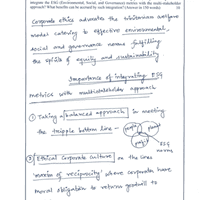 integrate the ESG (Environmental, Social, and Government) metrics with the multi-stakeholder
approach? What benefits can be accrued by such integration? Answer in (150 words) 10
Corporate ethics advocates the utilitarian welfare
model catering to effective environmental,
social and governance norms fulfilling
the spirits of equity and sustainability
Importance of integrating ESG
metrics with multistakeholder approach
① Taking a balanced approach in meeting
the tripple bottom line - people plane
profit
② Ethical Corporate culture on the lines ESG
norms
'norm of reciprocity' where corporates have
moral obligation to return goodwill to